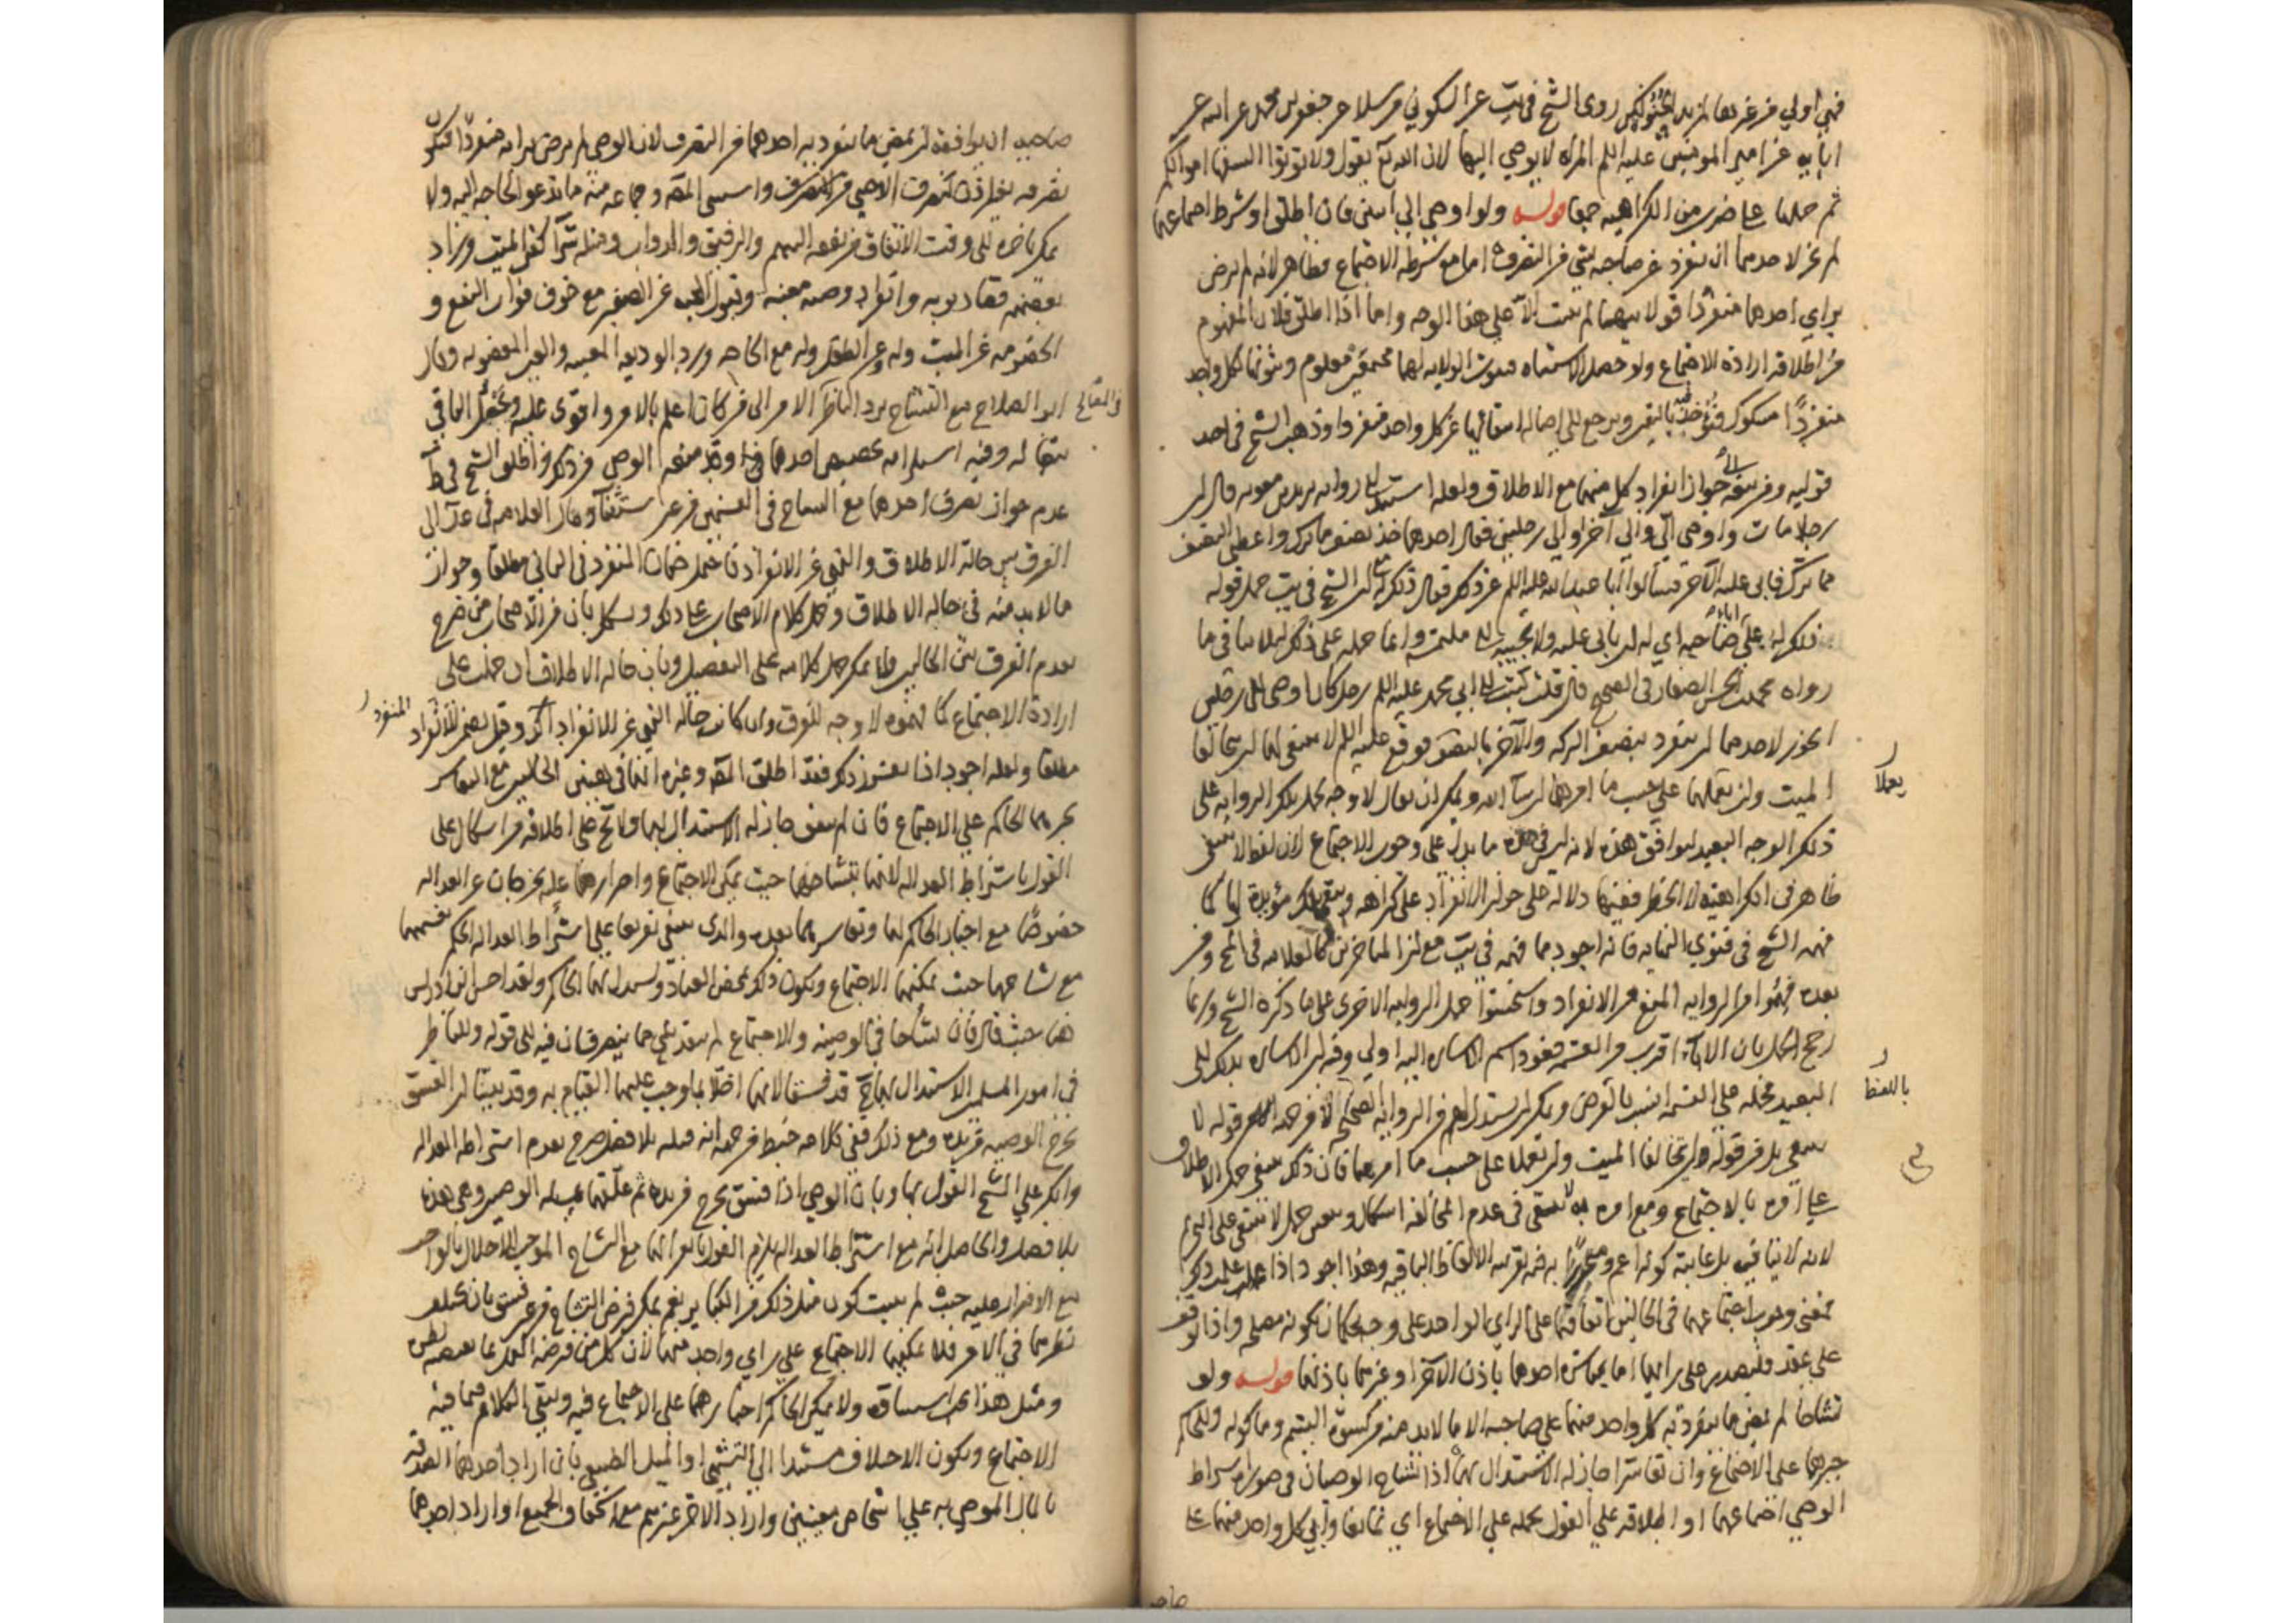 فهي اولي من غيرها لمزيد الحنو لكن روى الشيخ في يب عن السكوني مرسلا عن جعفر بن محمد عن ابيه عن
ابآيه عن امير المومنين عليه السلم المراه لا يوصي اليها لان الله تع يقول ولا توتوا السفها اموالكم
ثم حملها على ضرب من الكراهيه جمعا قوله ولو اوصى الي اثنين فان اطلق او شرط اجتماعهما
لم يجز لاحدهما ان ينفرد عن صاحبه بشي من التصرف اما مع شرطه الاجتماع فظاهر لانه لم يرض
براي احدهما منفردا فولايتهما لم يثبت الا على هذا الوجه واما اذا اطلق فلان المفهوم
من اطلاقه ارادة الاجتماع ولو حصل الاشتباه فثبوت الولايه لهما مجتمعين معلوم وثبوتها لكل واحد
منفردا مشكوك فيه فيؤخذ بالمتيقن ويرجع الى اصاله انتفائها عن كل واحد منفردا وذهب الشيخ في احد
قوليه ومن تبعه الى جواز انفراد كل منهما مع الاطلاق ولعله استند الى روايه بريد بن معويه قال ان
رجلا مات واوصى الي والى آخر او الى رجلين فقال احدهما خذ نصف ما ترك واعطني النصف
مما ترك فابى عليه الآخر فسالوا ابا عبد الله عليه السلم عن ذلك فقال ذلك له لان الشيخ في يب حمل قوله
ذلك له على اباء صاحبه اي له ان يابى عليه ولا يجيبه الى ملتمسه وانما حمله على ذلك لئلا ينافي ما
رواه محمد بن الحسن الصفار في الصحيح قال كتبت الى ابي محمد عليه السلم رجل كان اوصى الى رجلين
ايجوز لاحدهما ان ينفرد بنصف التركه والآخر بالنصف فوقع عليه السلم لا ينبغي لهما ان يخالفا
يعملا
الميت وان يعملا على حسب ما امرهما ان شآ الله ويمكن ان يقال لا وجه لحمل تلك الروايه على
ذلك الوجه البعيد ليوافق هذه لانه ليس في هذه ما يدل على وجوب الاجتماع لان لفظ لا ينبغي
ظاهر في الكراهيه لا الحظر ففيها دلاله على جواز الانفراد على كراهه وتبقى تلك مؤيده لها كما
فهمه الشيخ في فتوي النهايه فانه اجود مما فهمه في يب مع ان المتاخرين كالعلامه في المخ ومن
بعده فهموا من الروايه المنع من الانفراد واستحسنوا حمل الروايه الاخرى على ما ذكره الشيخ وربما
رجح الحمل بان الاباء اقرب من القسمه فعود اسم الاشاره اليه اولى وفيه ان الاشاره بذلك الى
باللفظ
البعيد فحمله على القسمه انسب بالغرض ويمكن ان يستدل لهم من الروايه الصحيحه لا من جهه قوله لا
ينبغي بل من قوله ان يخالفا الميت وان يعملا على حسب ما امرهما فان ذلك يبقى حمل الاطلاق
على امره بالاجتماع ومع امره به لا يبقى في عدم المخالفه اشكال ويتعين حمل لا ينبغي على التحريم
لانه لا ينافيه بل غايته كونه اعم ومتجوزا به فيه بقرينه الالفاظ الباقيه وهذا اجود اذا علمت ذلك
فمعنى وجوب اجتماعهما في الحالين اتفاقهما على الراي الواحد على وجه يحكمان بكونه مصلحه واذا توقف
على عقد فليصدر على رايهما اما بمباشره احدهما باذن الآخر او غيرهما باذنهما قوله ولو
تشاحا لم يمض ما ينفرد به كل واحد منهما على صاحبه الا ما لابد منه من كسوة اليتيم وماكوله وللحاكم
جبرهما على الاجتماع وان تعاسرا جاز له الاستبدال بهما اذا تشاح الوصيان في صوره اشتراط
الموصي اجتماعهما او اطلاقه على القول بحمله على الاجتماع اي تمانعا وابى كل واحد منهما على
صاحب
صاحبه ان يوافقه لم يمض ما ينفرد به احدهما من التصرف لان الموصي لم يرض برايه منفردا فيكون
تصرفه بغير اذن كتصرف الاجنبي من التصرف واستثنى المصه وجماعه منه ما تدعو الحاجه اليه ولا
يمكن تاخيره الى وقت الاتفاق من نفقه اليتيم والرقيق والدواب ومثله شرآ كفن الميت وزاد
بعضهم قضا ديونه وانفاذ وصيه معينه وقبول الهبه عن الصغير مع خوف فوات النفع و
الخصومه عن الميت وله وعن الطفل وله مع الحاجه ورد الوديعه المعينه والعين المغصوبه وقال
ابو الصلاح مع التشاح يرد الناظر الامر الى من كان اعلم بالامر واقوى عليه ويجعل الباقي
تبعا له وفيه اشكال انه تخصيص احدهما وقد منعه الموصي من ذلك واطلق الشيخ في ط
عدم جواز تصرف احدهما مع التشاح في القسمين من غير استثنآ وقال العلامه في عد الى
الفرق بين حالة الاطلاق والنهي عن الانفراد فاحتمل ضمان المنفرد في الثاني مطلقا وجواز
ما لابد منه في حاله الاطلاق وحمل كلام الاصحاب على ذلك ويشكل بان من الاصحاب من صرح
بعدم الفرق بين الحالين ولا يمكن حمل كلامه على التفصيل وبان حاله الاطلاق ان حملت على
ارادة الاجتماع كما فهموه لا وجه للفرق وان كانت حاله النهي عن الانفراد آكد وقيل يضمن المنفرد
مطلقا ولعله اجود اذا تقرر ذلك فقد اطلق المصه وغيره انهما في هذين الحالين مع التعاسر
يجبرهما الحاكم على الاجتماع فان لم يتفق جاز له الاستبدال بهما ولا يخ على اطلاقه من اشكال على
القول باشتراط العداله لانهما بتشاحهما حيث يمكن الاجتماع واصرارهما عليه يخرجان عن العداله
خصوصا مع اجبار الحاكم لهما وتعاسرهما بعده والذى ينبغي تفريعا على اشتراط العداله الحكم بفسقهما
مع تشاحهما حيث يمكنهما الاجتماع ويكون ذلك محض العناد ويستبدل بهما الحاكم ولقد احسن ابن ادريس
هنا حيث قال فان تشاحا في الوصيه والاجتماع لم ينفذ شي مما يتصرفان فيه الى قوله وللناظر
في امور المسلمين الاستبدال بهما لانهما ح قد فسقا لانهما اخلا بما وجب عليهما القيام به وقد بينا ان الفسق
يخرج الوصيه من يده ومع ذلك ففي كلامه خبط من جهه انه قبله بلا فصل صرح بعدم اشتراط العداله
وانكر على الشيخ القول بها وبان الوصي اذا فسق يخرج من يده
بلا فصل والحاصل انه مع اشتراط العداله يلزم القول بانعزالهما مع التشاح الموجب للاخلال بالواجب
مع الاصرار عليه حيث لم يثبت كون مثل ذلك من الكباير نعم يمكن فرض التشاح من غير فسق بان يختلف
نظرهما في الامر فلا يمكنهما الاجتماع على راي واحد منهما لان كلا منهما فرضه العمل بما يقتضيه نظره
ومثل هذا لا يجب اتفاقه ولا يمكن الحاكم اجبارهما على الاجتماع فيه ويبقى الكلام فيما فيه
الاجتماع ويكون الاختلاف مستندا الى التشهي او الميل الطبيعي بان اراد احدهما الصدقه
بالمال الموصي به على اشخاص معينين واراد الآخر غيرهم مع استحقاق الجميع او اراد احدهما